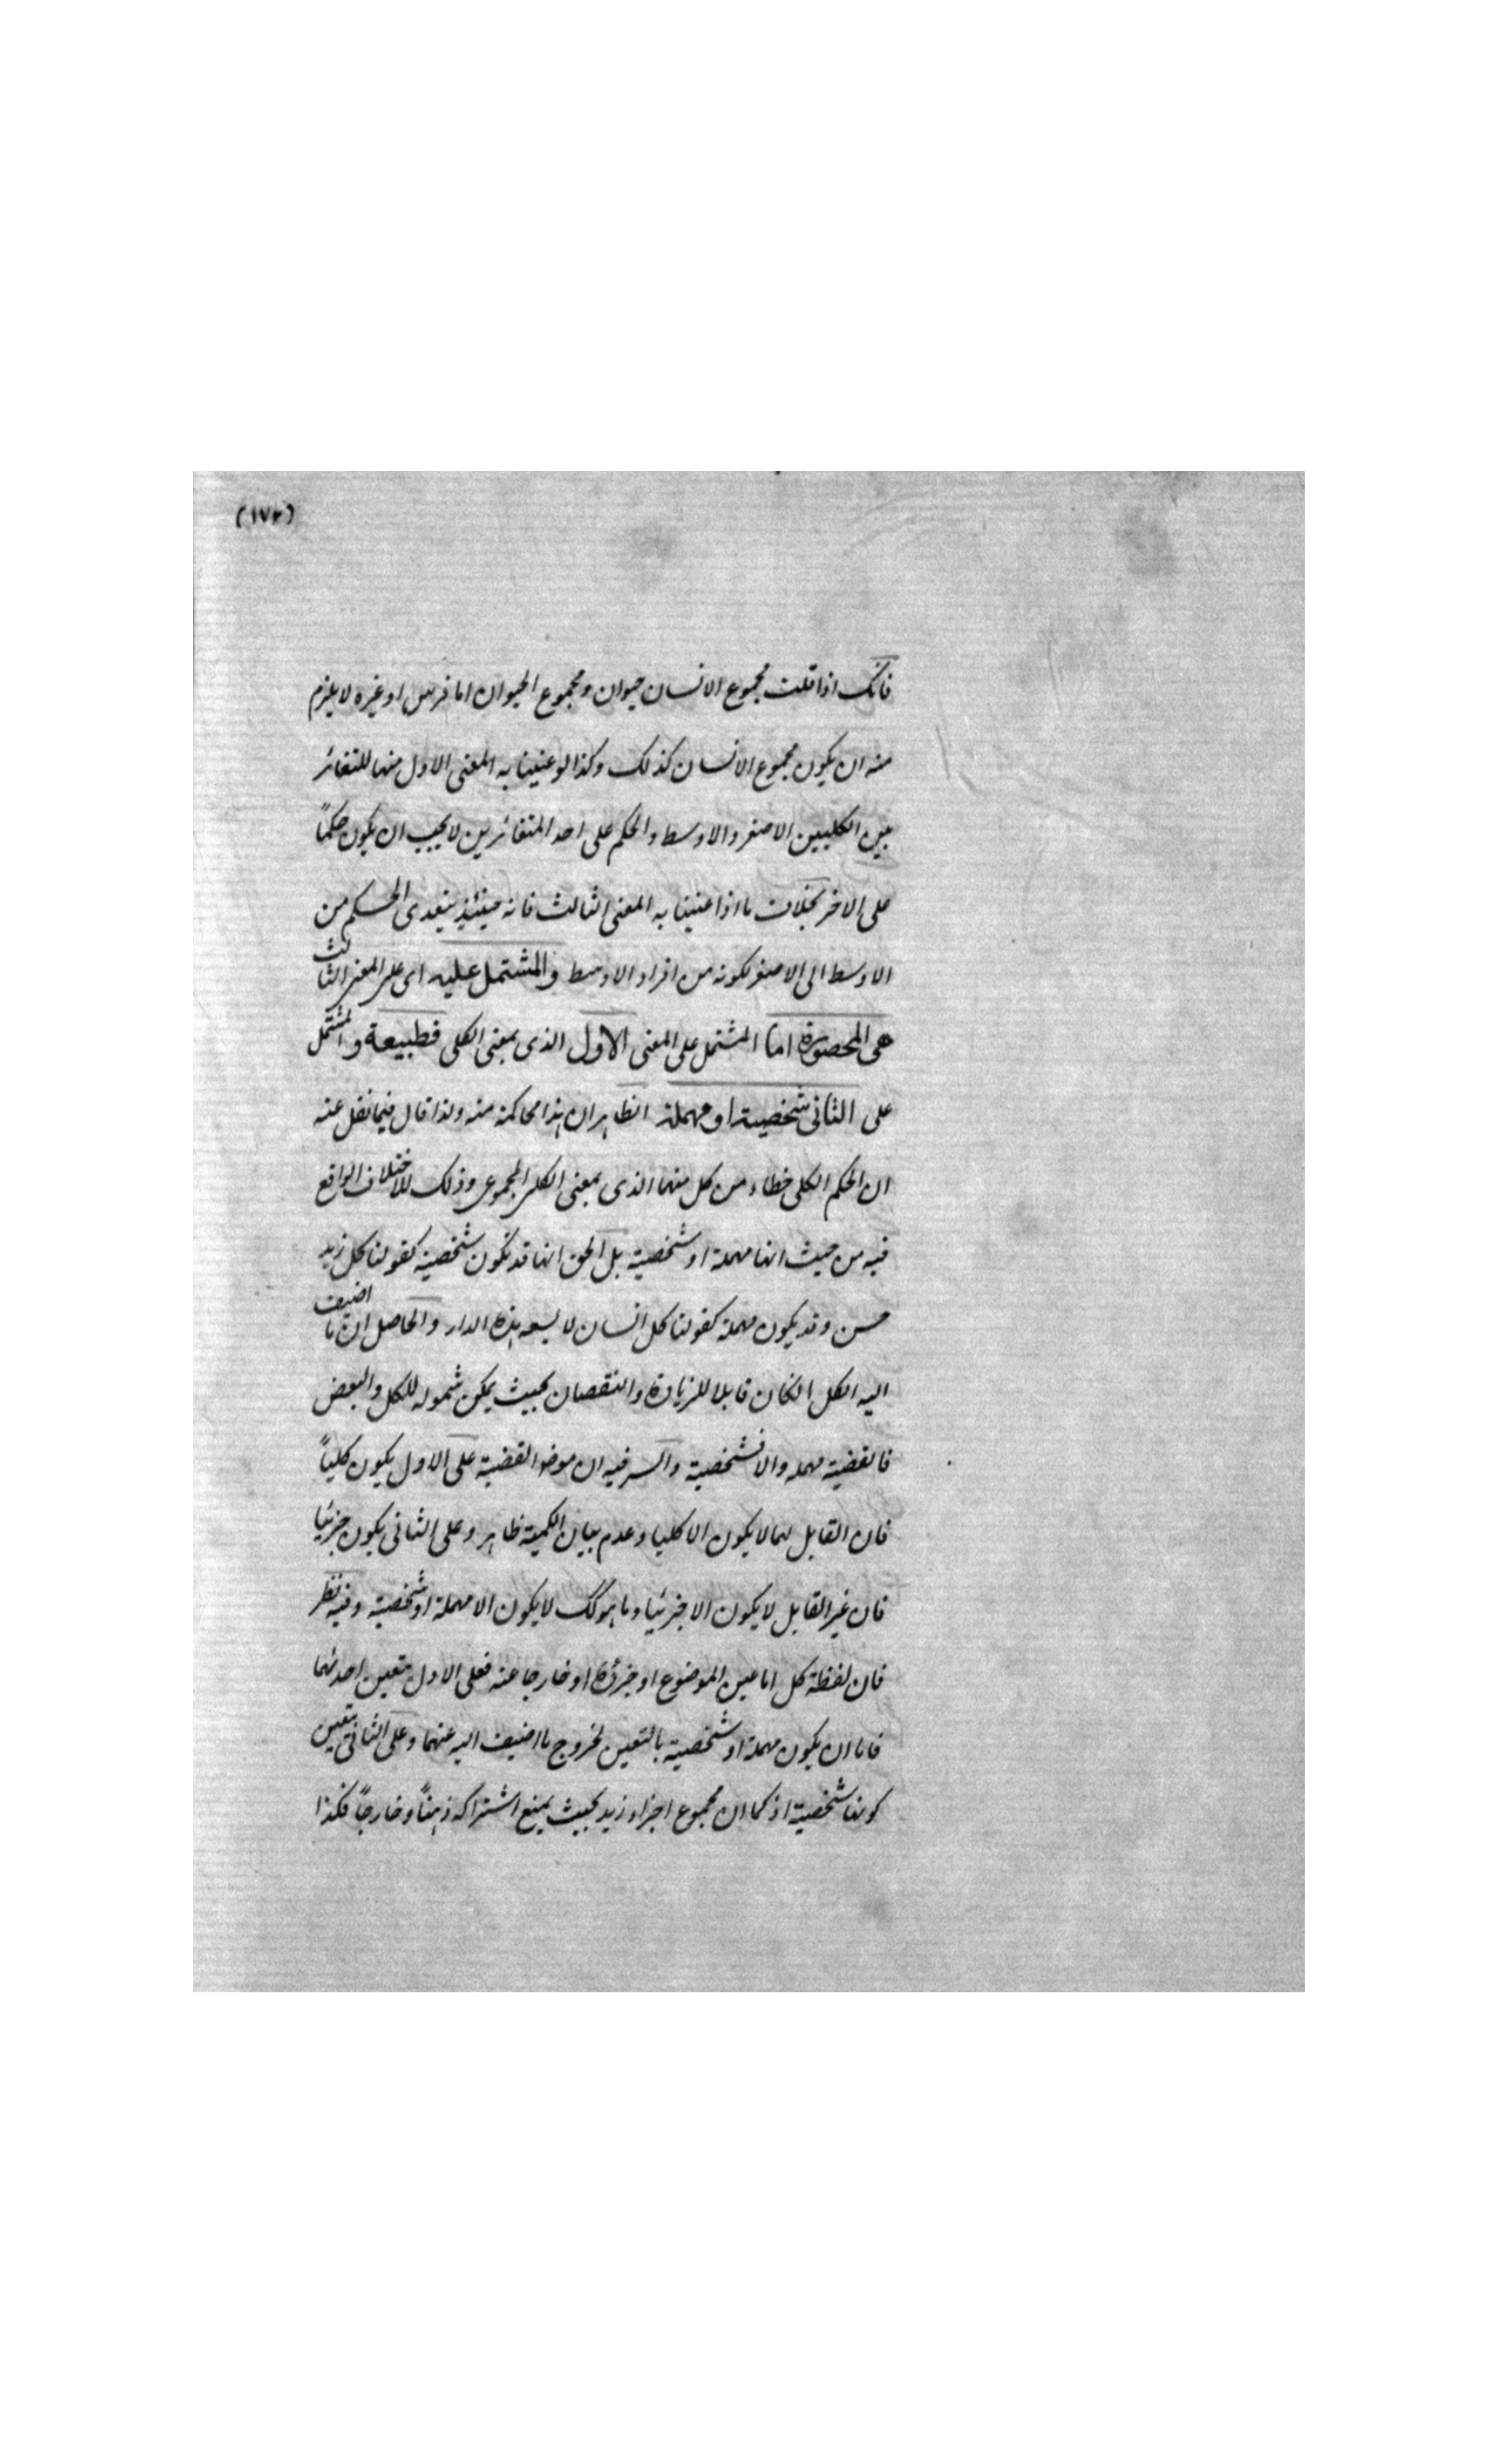 (١٧٢)
فانك اذا قلت مجموع الانسان حيوان ومجموع الحيوان اما فرس او غيره لا يلزم
منه ان يكون مجموع الانسان كذلك وكذا لو عنينا به المعنى الاول منها للتغائر
بين الكليين الاصغر والاوسط والحكم على احد المتغائرين لا يجب ان يكون حكماً
على الاخر بخلاف ما اذا عنينا به المعنى الثالث فانه حينئذ يتعدى الحكم من
الاوسط الى الاصغر لكونه من افراد الاوسط والمشتمل عليه اى على المعنى الثالث
هى المحصورة اما المشتمل على المعنى الاول الذى بمعنى الكلى فطبيعة والمشتمل
على الثانى شخصية او مهملة الظاهر ان هذا محاكمة منه ولذا قال فيما نقل عنه
ان الحكم الكلى خطاء من كل منهما الذى بمعنى الكل المجموعى وذلك للاختلاف الواقع
فيه من حيث انها مهملة او شخصية بل الحق انها قد تكون شخصية كقولنا كل زيد
حسن وقد يكون مهملة كقولنا كل انسان لا يسعه هذه الدار والحاصل ان ما اضيف
اليه الكل انكان قابلا للزيادة والنقصان بحيث يمكن شموله للكل والبعض
فالقضية مهمله والا فشخصية والسر فيه ان موضوا القضية على الاول يكون كلياً
فان القابل لهما لا يكون الا كليا وعدم بيان الكمية ظاهر وعلى الثانى يكون جزئيا
فان غير القابل لا يكون الا جزئيا وما هو كك لا يكون الا مهملة او شخصية وفيه نظر
فان لفظة كل اما عين الموضوع او جزؤه او خارجا عنه فعلى الاول يتعين احدهما
فاما ان يكون مهملة او شخصية بالتعين لخروج ما اضيف اليه عنهما وعلى الثانى يتعين
كونها شخصية اذ كما ان مجموع اجزاء زيد بحيث يمنع اشتراكه ذهناً وخارجاً فكذا